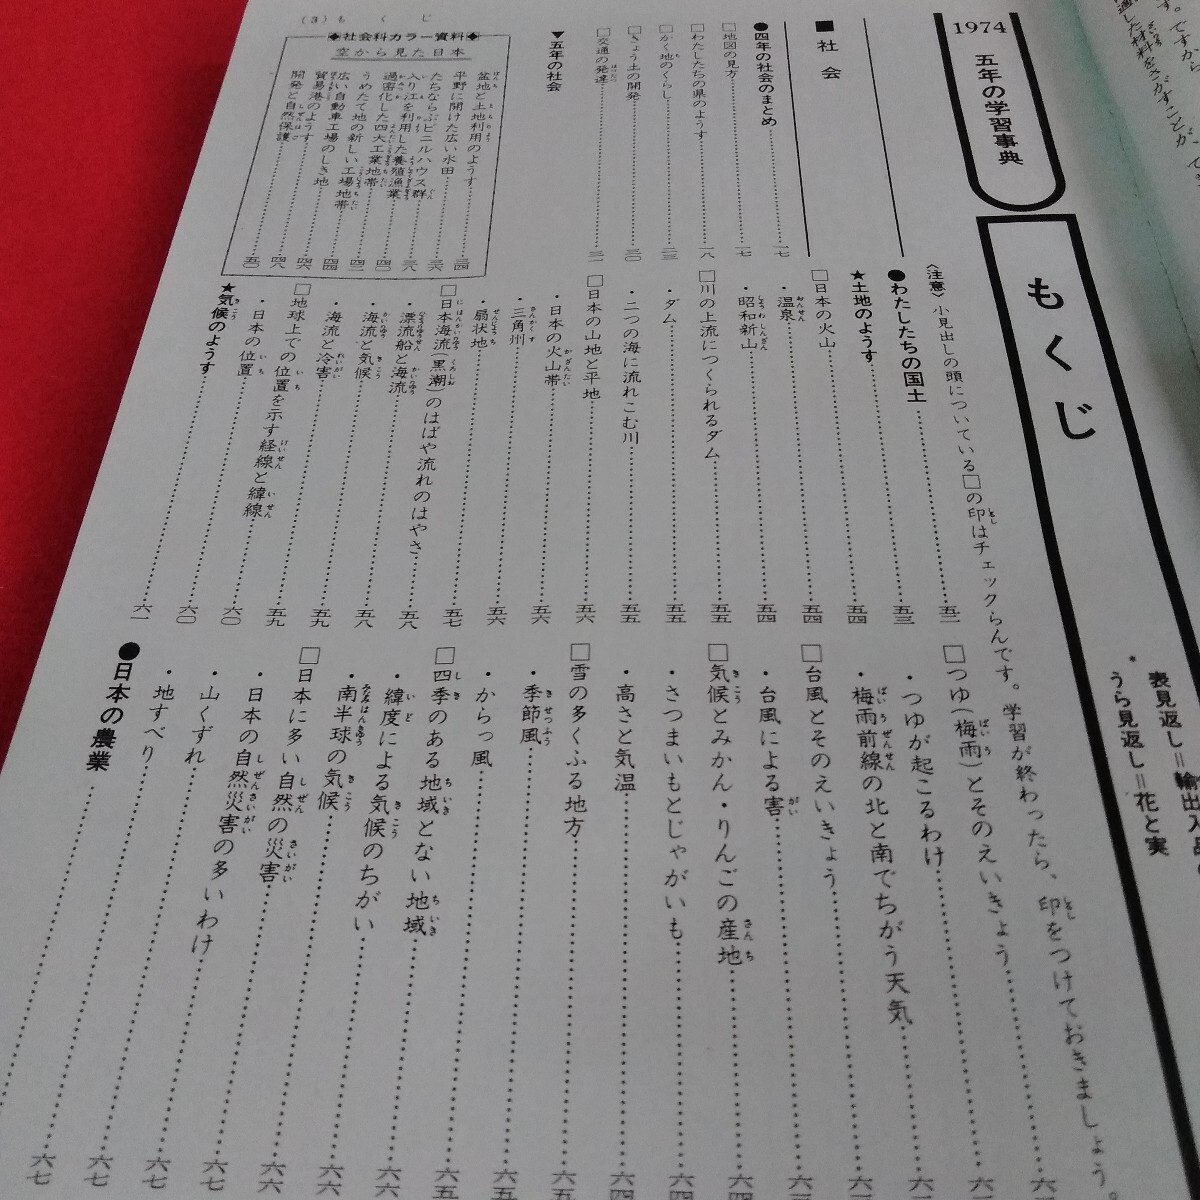 1974
五年の学習事典
もくじ
*表見返し＝輸出入品
うら見返し＝花と実
〈注意〉小見出しの頭についている□の印はチェックらんです。学習が終わったら、印をつけておきましょう。
■社会
●四年の社会のまとめ……一七
□地図の見方……一七
□わたしたちの県のようす……一八
□かく地のくらし……二三
□きょう土の開発……三〇
□交通の発達……三二
▼五年の社会
◆社会科カラー資料◆
空から見た日本
盆地と土地利用のようす……三四
平野に開けた広い水田……三六
たちならぶビニルハウス群……三八
入り江を利用した養殖漁業……四〇
過密化した四大工業地帯
うめたて地の新しい工場地帯
広い自動車工場のしき地……四四
貿易港のようす……四六
開発と自然保護……五〇
(3) もくじ
●わたしたちの国土……五三
★土地のようす……五四
□日本の火山……五四
・温泉……五四
・昭和新山……五四
□川の上流につくられるダム……五五
・ダム……五五
・二つの海に流れこむ川……五五
□日本の山地と平地……五六
・日本の火山帯……五六
・三角州……五六
・扇状地……五六
□日本海流(黒潮)のはばや流れのはやさ……五七
・漂流船と海流……五八
・海流と気候……五八
・海流と冷害……五九
□地球上での位置を示す経線と緯線……五九
・日本の位置……六〇
★気候のようす……六一
□つゆ(梅雨)とそのえいきょう
・つゆが起こるわけ
・梅雨前線の北と南でちがう天気
□台風とそのえいきょう
・台風による害
□気候とみかん・りんごの産地
・さつまいもとじゃがいも……六四
・高さと気温……六四
□雪の多くふる地方
・季節風……六五
・からっ風
□四季のある地域とない地域
・緯度による気候のちがい
・南半球の気候……六六
□日本に多い自然の災害……六六
・日本の自然災害の多いわけ……六七
・山くずれ……六七
・地すべり……六七
●日本の農業……六七